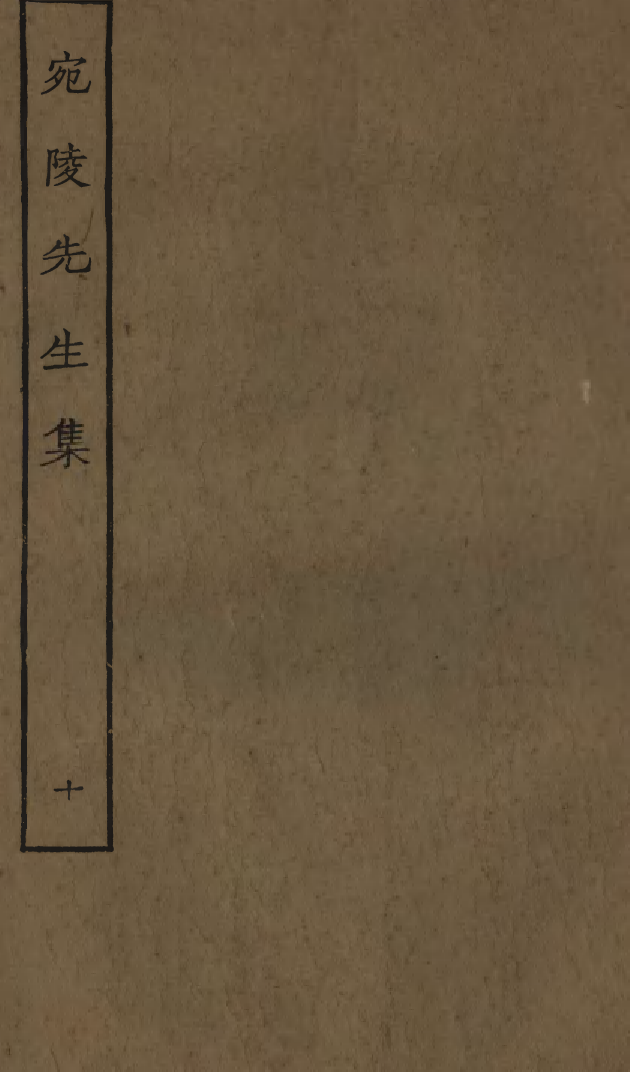 宛陵先生集
十